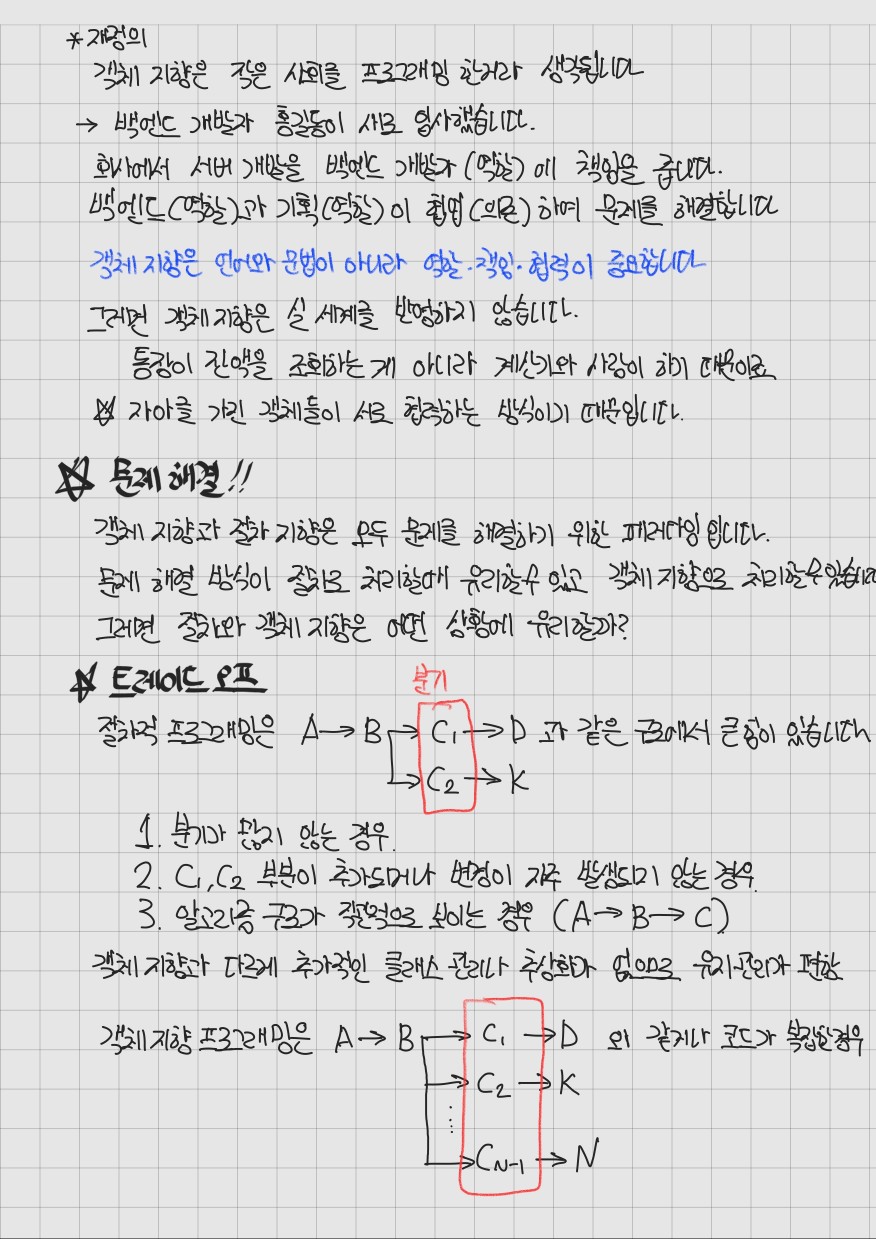 * 재정의
객체 지향은 작은 사회를 프로그래밍 한거라 생각됩니다
→ 백엔드 개발자 홍길동이 새로 입사했습니다.
회사에서 서버 개발을 백엔드 개발자(역할)에 책임을 줍니다.
백엔드(역할)과 기획(역할)이 협업(의존)하여 문제를 해결합니다
객체 지향은 언어와 문법이 아니라 역할·책임·협력이 중요합니다
그러면 객체 지향은 실 세계를 반영하지 않습니다.
통장이 잔액을 조회하는게 아니라 계산기와 사람이 하기 때문이죠
☆ 자아를 가진 객체들이 서로 협력하는 방식이기 때문입니다.
☆ 문제 해결!!
객체 지향과 절차 지향은 모두 문제를 해결하기 위한 패러다임 입니다.
문제 해결 방식이 절차로 처리할때 유리할수 있고 객체 지향으로 처리할수있습니다
그러면 절차와 객체 지향은 어떤 상황에 유리할까?
☆ 트레이드 오프
분기
절차적 프로그래밍은 A → B → C₁ → D 과 같은 구조에서 큰 힘이 있습니다
C₂ → K
1. 분기가 많지 않는 경우.
2. C₁, C₂ 부분이 추가되거나 변경이 자주 발생되지 않는 경우.
3. 알고리즘 구조가 직관적으로 보이는 경우 (A → B → C)
객체 지향과 다르게 추가적인 클래스 관리나 추상화가 없으므로 유지관리가 편함
객체 지향 프로그래밍은 A → B → C₁ → D 와 같거나 코드가 복잡할경우
C₂ → K
⋮
C_N-1 → N